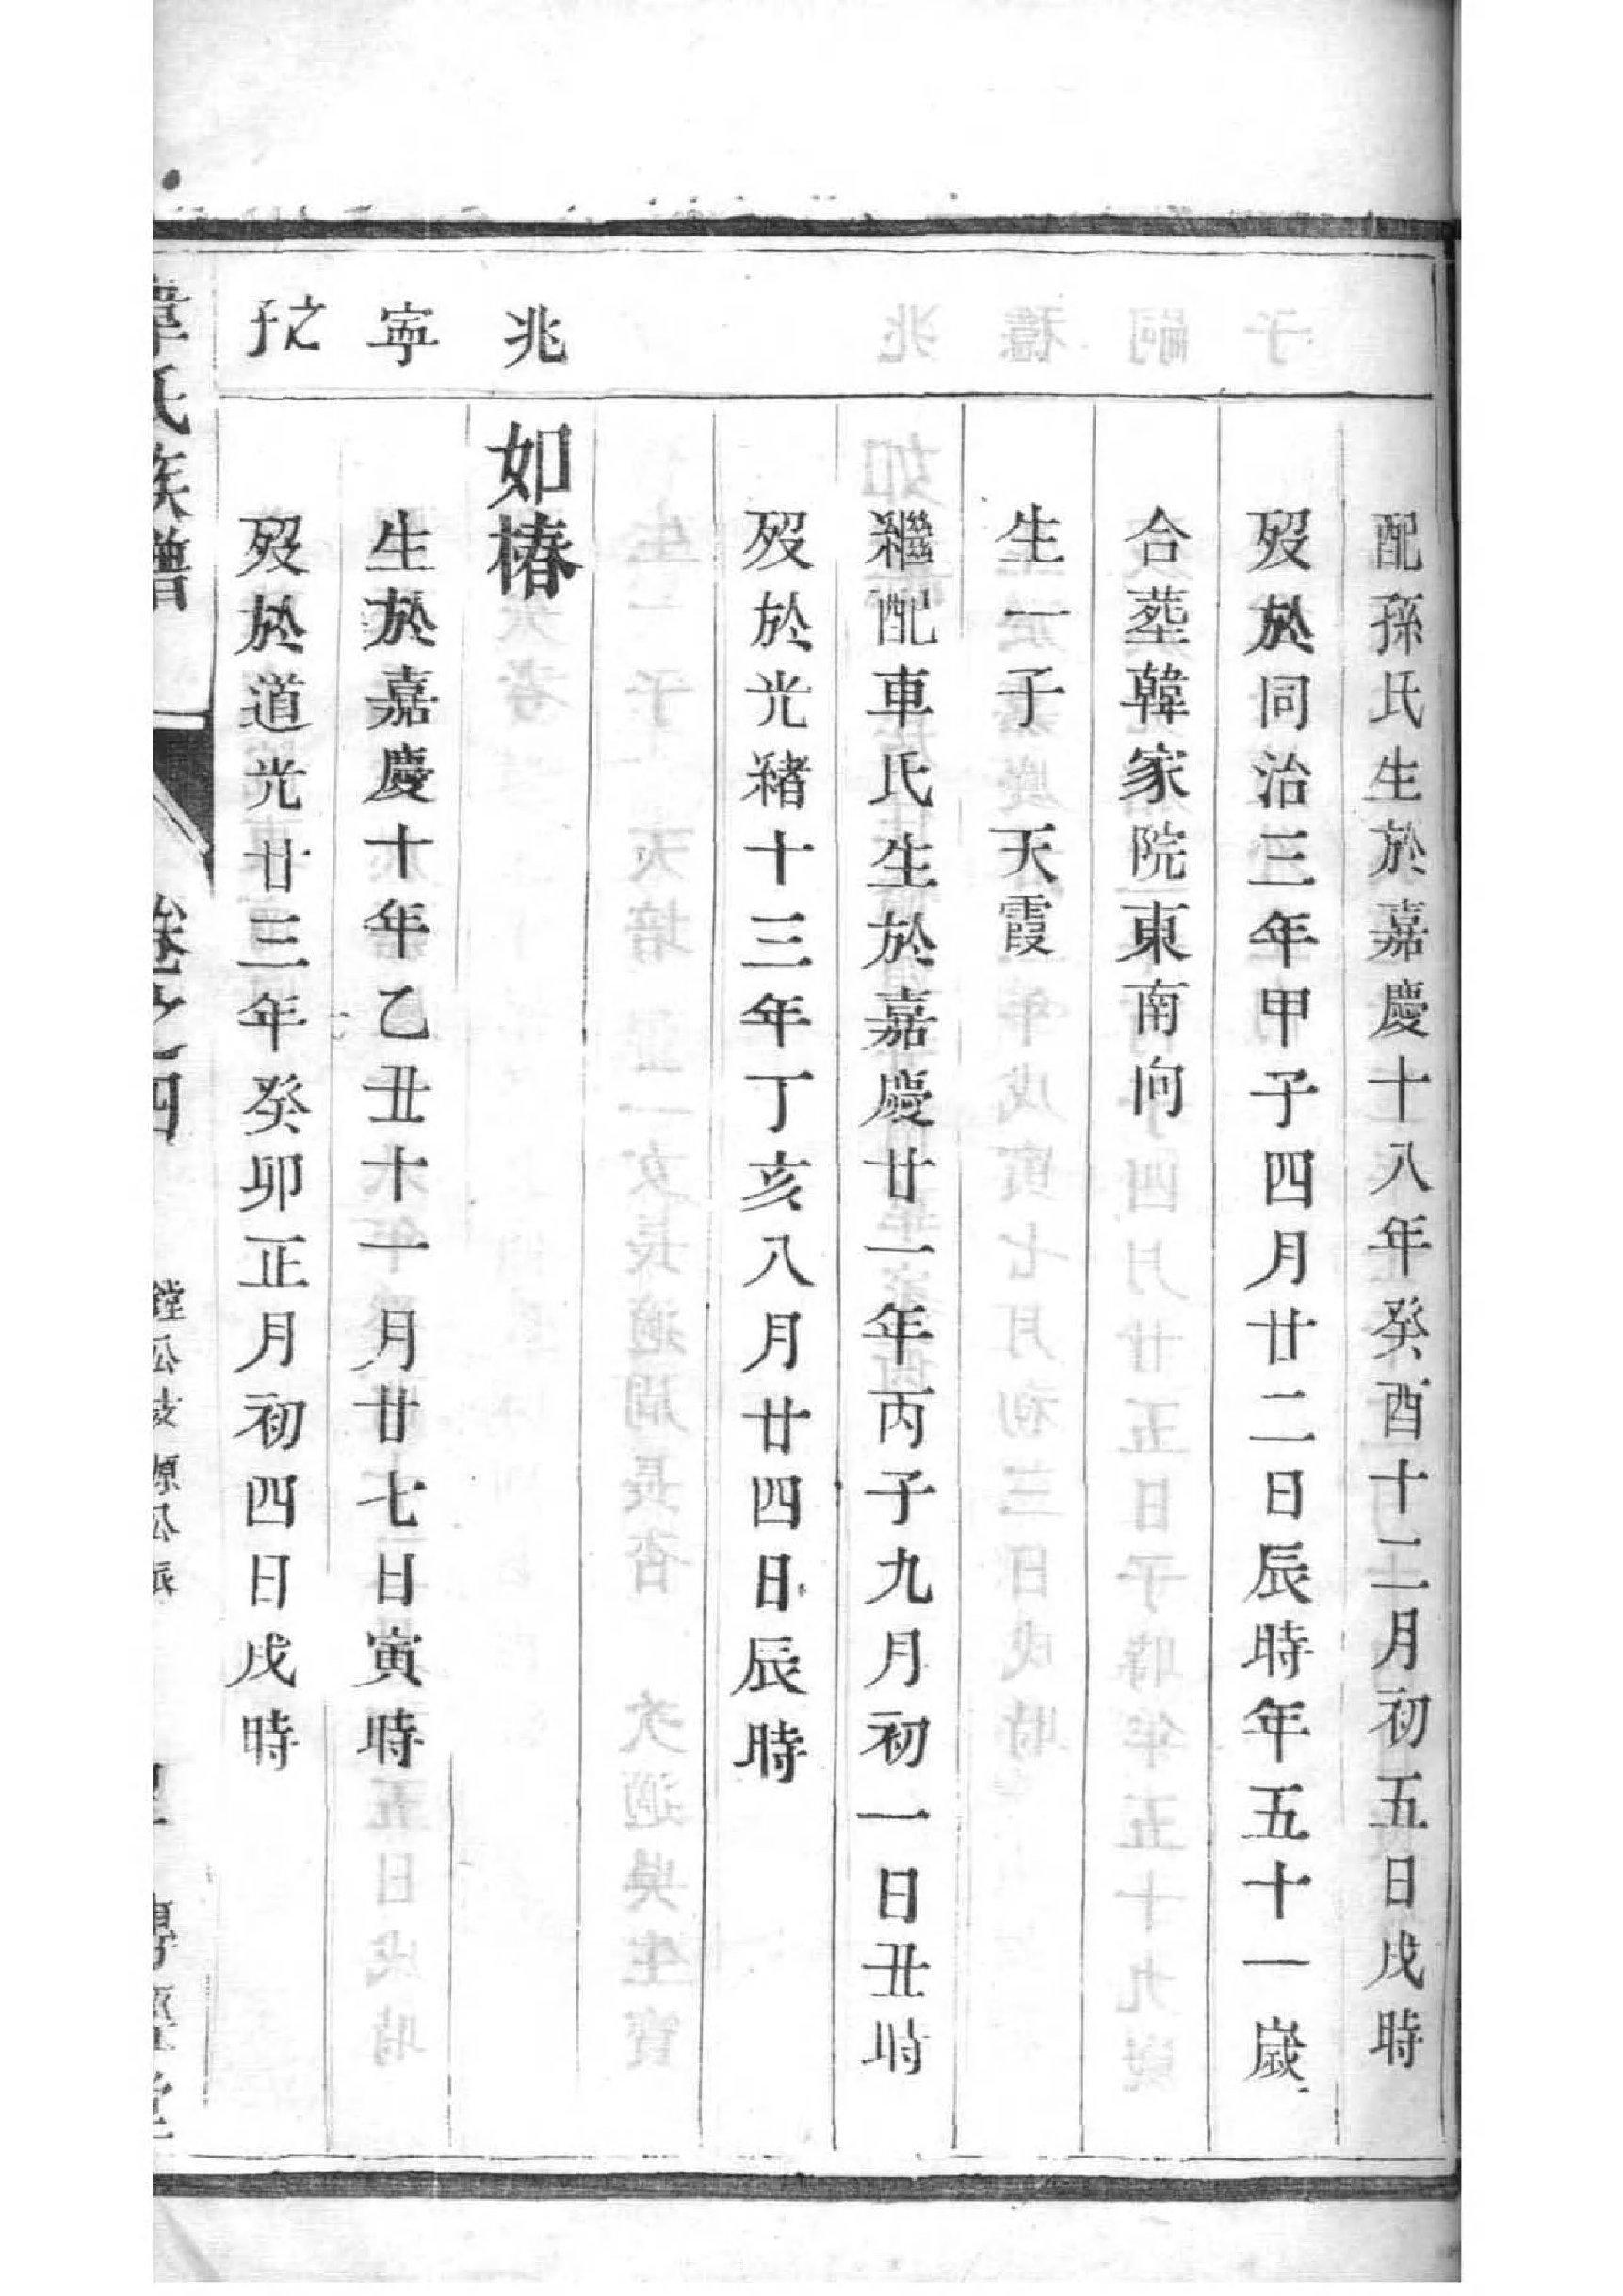 配孫氏生於嘉慶十八年癸酉十二月初五日戌時
歿於同治三年甲子四月廿二日辰時年五十一歲
合塟韓家院東南向
生一子 天霞
繼配車氏生於嘉慶廿一年丙子九月初一日丑時
歿於光緒十三年丁亥八月廿四日辰時
兆
如椿
寧
生於嘉慶十年乙丑十一月廿七日寅時
之子
歿於道光廿三年癸卯正月初四日戌時
韋氏族譜
卷之四